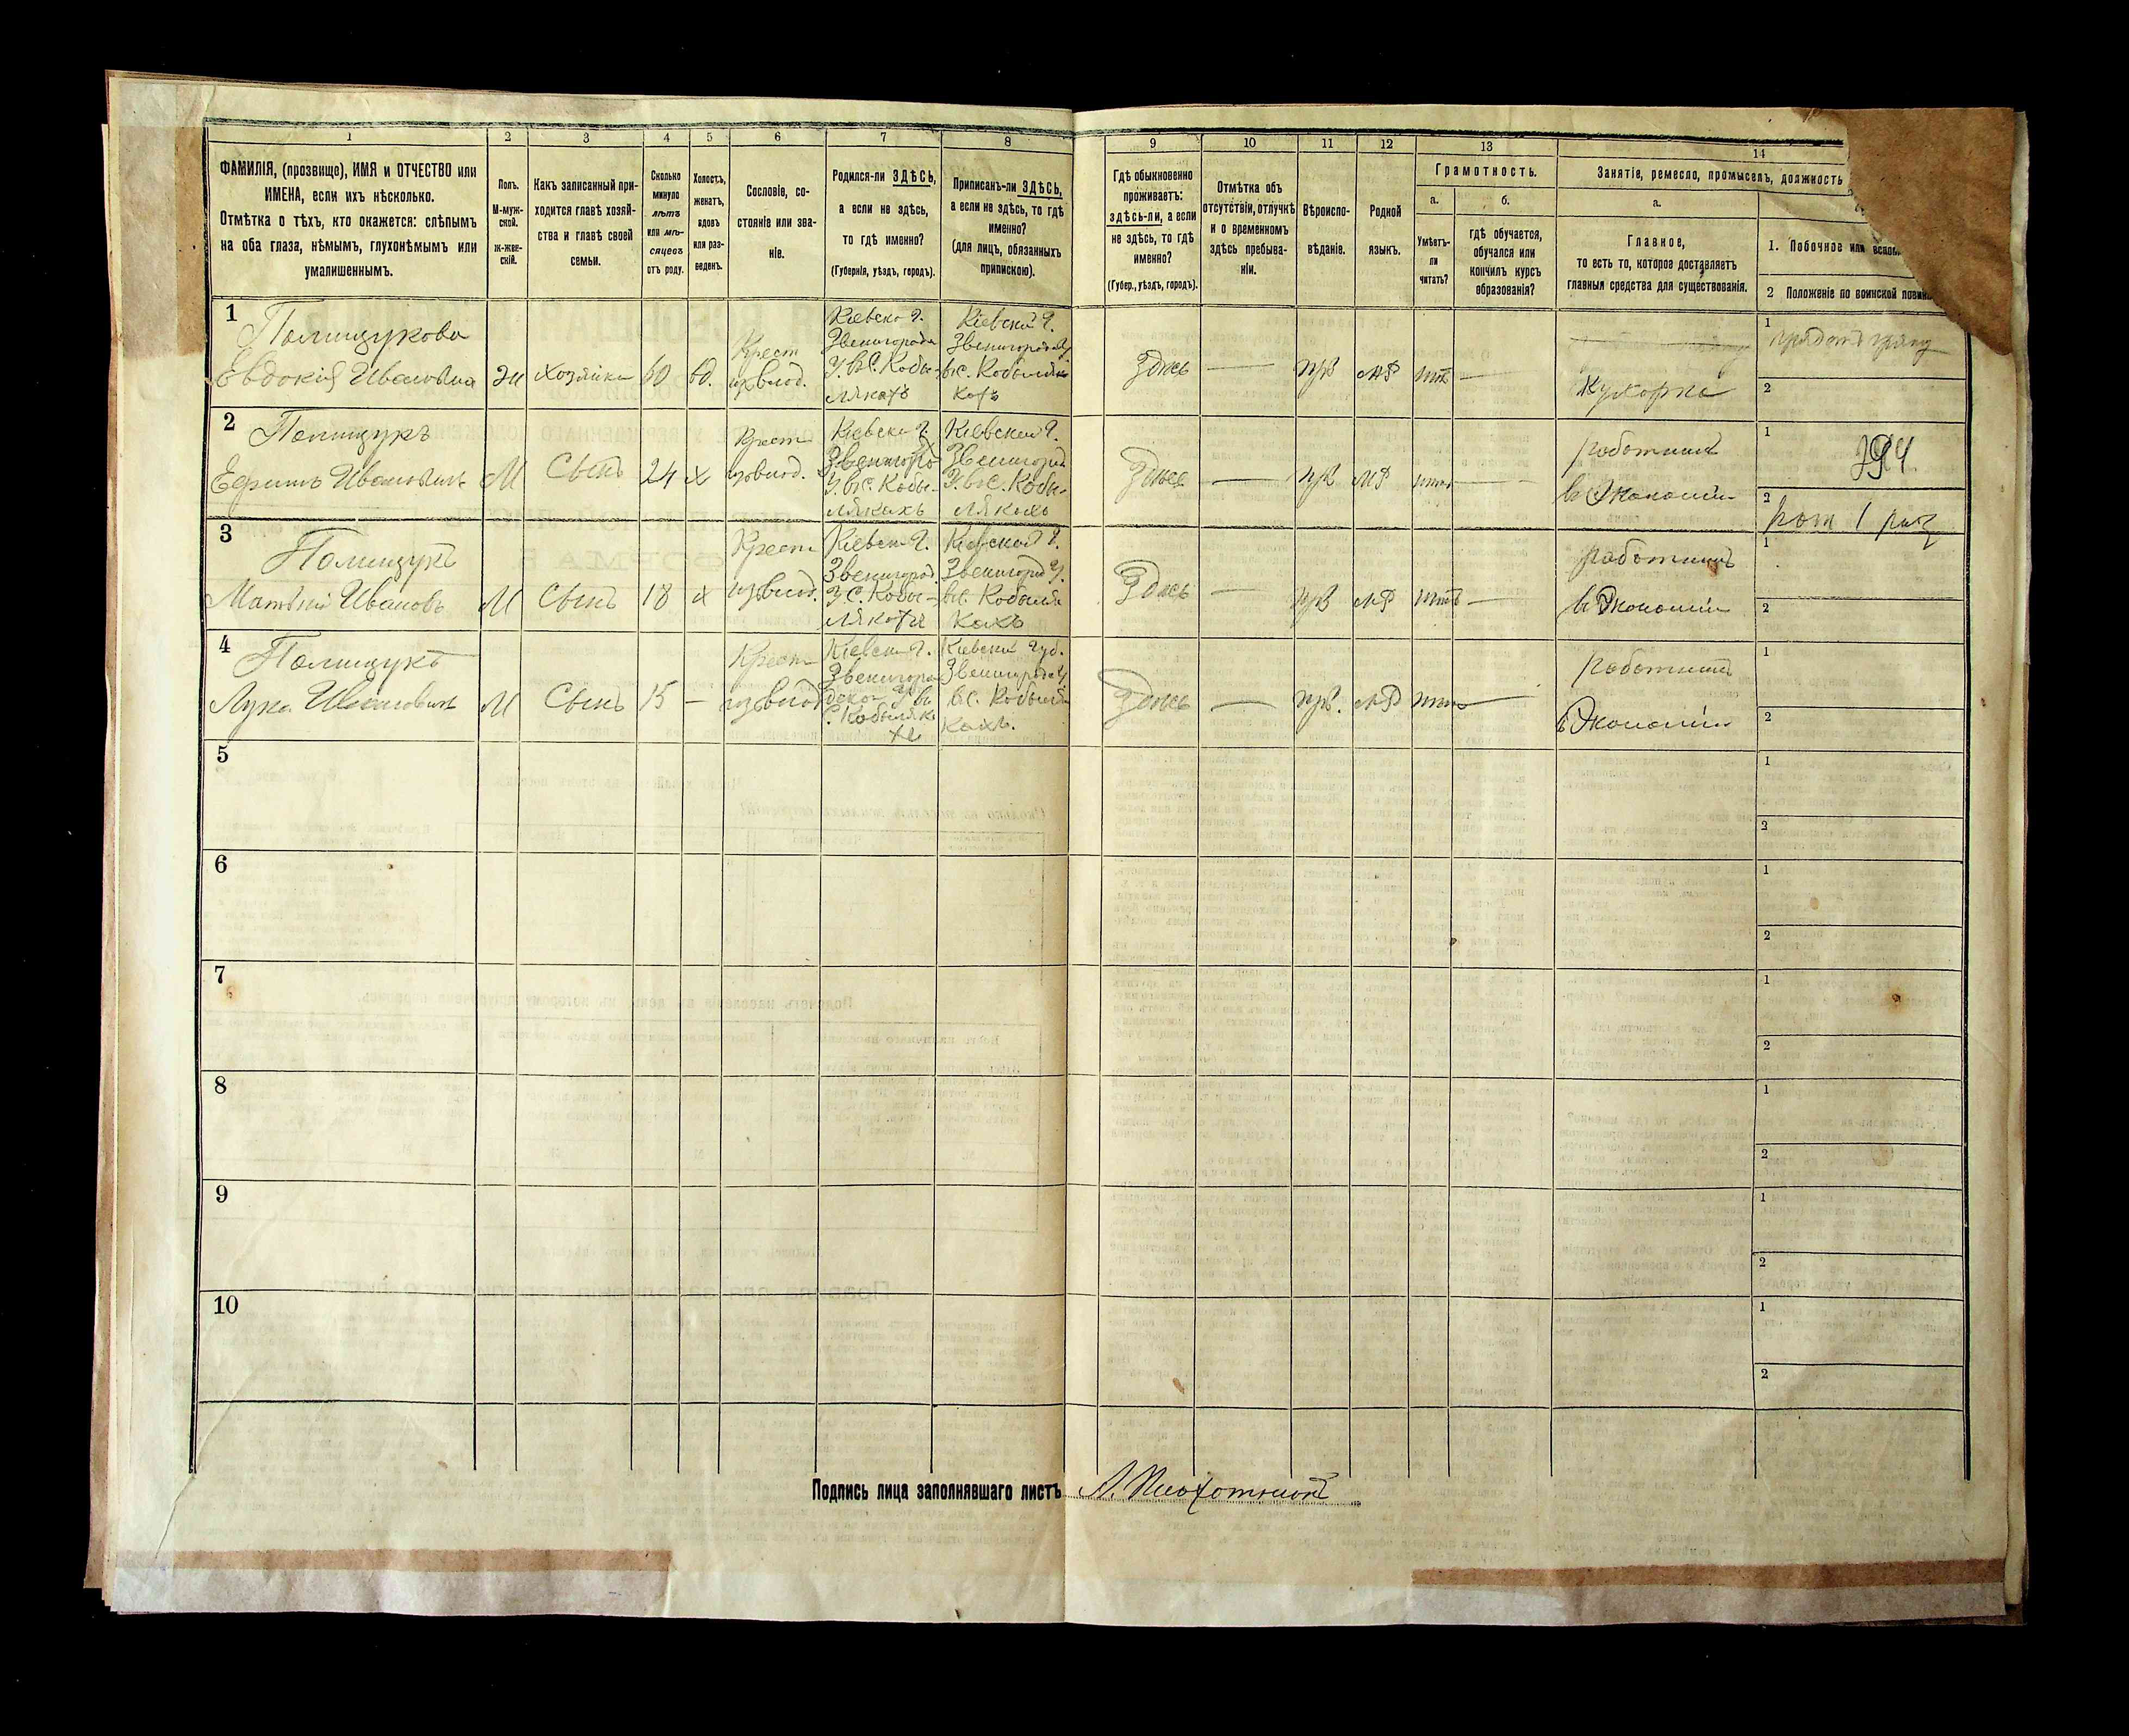 1 2 3 4 5 6 7 8 9 10 11 12 13 14
ФАМИЛІЯ, (прозвище), ИМЯ и ОТЧЕСТВО или
ИМЕНА, если ихъ нѣсколько.
Отмѣтка о тѣхъ, кто окажется: слѣпымъ
на оба глаза, нѣмымъ, глухонѣмымъ или
умалишеннымъ.
Полъ.
М-муж-
ской.
ж-жен-
скій.
Какъ записанный при-
ходится главѣ хозяй-
ства и главѣ своей
семьи.
Сколько
минуло
лѣтъ
или мѣ-
сяцевъ
отъ роду.
Холостъ,
женатъ,
вдовъ
или раз-
веденъ.
Сословіе, со-
стояніе или зва-
ніе.
Родился-ли ЗДѢСЬ,
а если не здѣсь,
то гдѣ именно?
(Губернія, уѣздъ, городъ).
Приписанъ-ли ЗДѢСЬ,
а если не здѣсь, то гдѣ
именно?
(для лицъ, обязанныхъ
припискою).
Гдѣ обыкновенно
проживаетъ:
здѣсь-ли, а если
не здѣсь, то гдѣ
именно?
(Губер., уѣздъ, городъ).
Отмѣтка объ
отсутствіи, отлучкѣ
и о временномъ
здѣсь пребыва-
ніи.
Вѣроиспо-
вѣданіе.
Родной
языкъ.
Грамотность.
а.
Умѣетъ-
ли
читать?
б.
гдѣ обучается,
обучался или
кончилъ курсъ
образованія?
Занятіе, ремесло, промыселъ, должность
а.
Главное,
то есть то, которое доставляетъ
главныя средства для существованія.
1. Побочное или
2 Положеніе по воинской
1
Полищукова
Евдокія Ивановна
ж
хозяйка
60
вд.
Крест
изъ влад.
Кіевско г.
Звенигородс
У. въ С. Кобы-
лякахъ
Кіевской г.
Звенигородс У
въ с. Кобыля
кахъ
Здѣсь
—
пр
мр
нѣтъ
—
Кухарка
1
прядетъ пряжу
2
2
Полищукъ
Ефимъ Ивановичъ
М
Сынъ
24
х
Крест
изъ влад.
Кіевско г.
Звенигоро
У. въ С. Кобы-
лякахъ
Кіевской г.
Звенигород
У. въ С. Кобы-
лякахъ
Здѣсь
—
пр
мр
нѣтъ
—
работникъ
въ Экономіи
1
2
3
Полищукъ
Матвѣй Ивановъ
М
Сынъ
18
х
Крест
изъ влад.
Кіевск г.
Звенигород.
У. С. Кобы-
лякахъ
Кіевской г.
Звенигород У.
въ с. Кобыля
кахъ
Здѣсь
—
пр
мр
нѣтъ
—
работникъ
въ Экономіи
1
2
4
Полищукъ
Лука Ивановичъ
М
Сынъ
15
—
Крест
изъ влад
Кіевск г.
Звенигоро
дско У въ
С. Кобыляка
хъ
Кіевской губ.
Звенигородс У
въ с. Кобыля
кахъ.
Здѣсь
—
пр.
мр
нѣтъ
—
Работникъ
въ Экономіи
1
2
5
1
2
6
1
2
7
1
2
8
1
2
9
1
2
10
1
2
Подпись лица заполнявшаго листъ